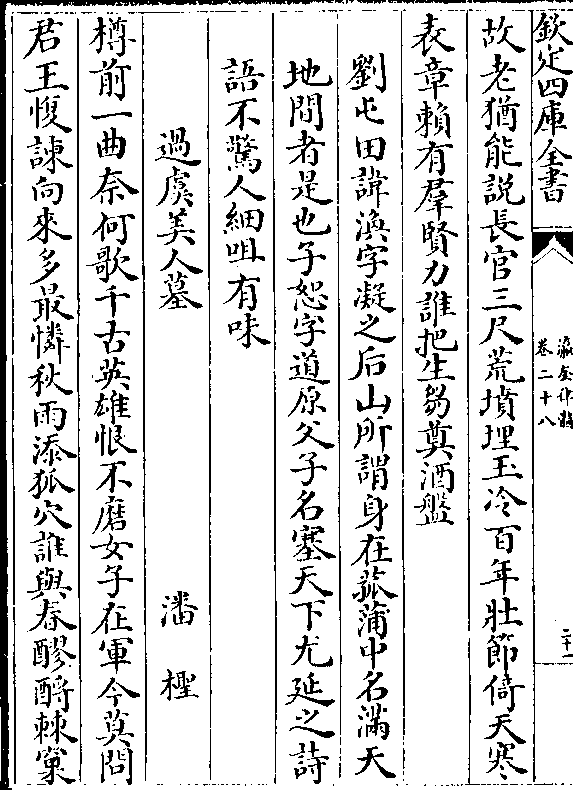 欽定四庫全書
瀛奎律髓
卷二十八
二十一
故老猶能說長官三尺荒墳埋玉冷百年壯節倚天寒
表章賴有羣賢力誰把生芻奠酒盤
劉屯田諱渙字凝之后山所謂身在菰蒲中名滿天
地間者是也子恕字道原父子名塞天下尤延之詩
語不驚人細咀有味
過虞美人墓
潘檉
樽前一曲奈何歌千古英雄恨不磨女子在軍今莫問
君王愎諫向來多最憐秋雨添狐穴誰與春醪酹棘窠